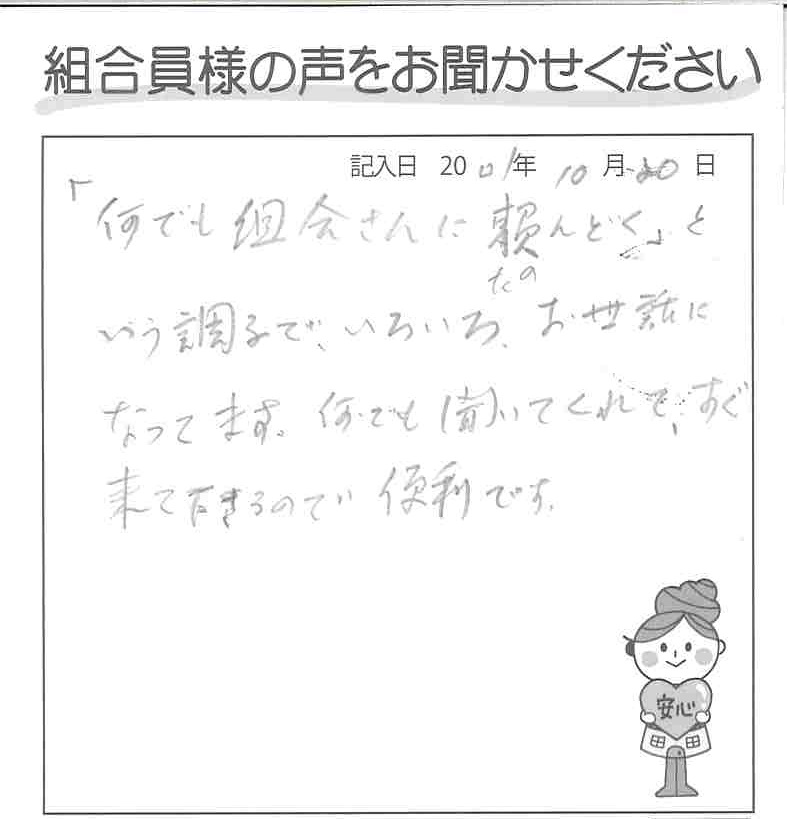 組合員様の声をお聞かせください
記入日 20 年 10 月 20 日
「何でも組合さんに頼んどく」と
たの
いう調子で、いろいろ、お世話に
なってます。何でも聞いてくれて、すぐ
来て下さるので 便利です。
安心